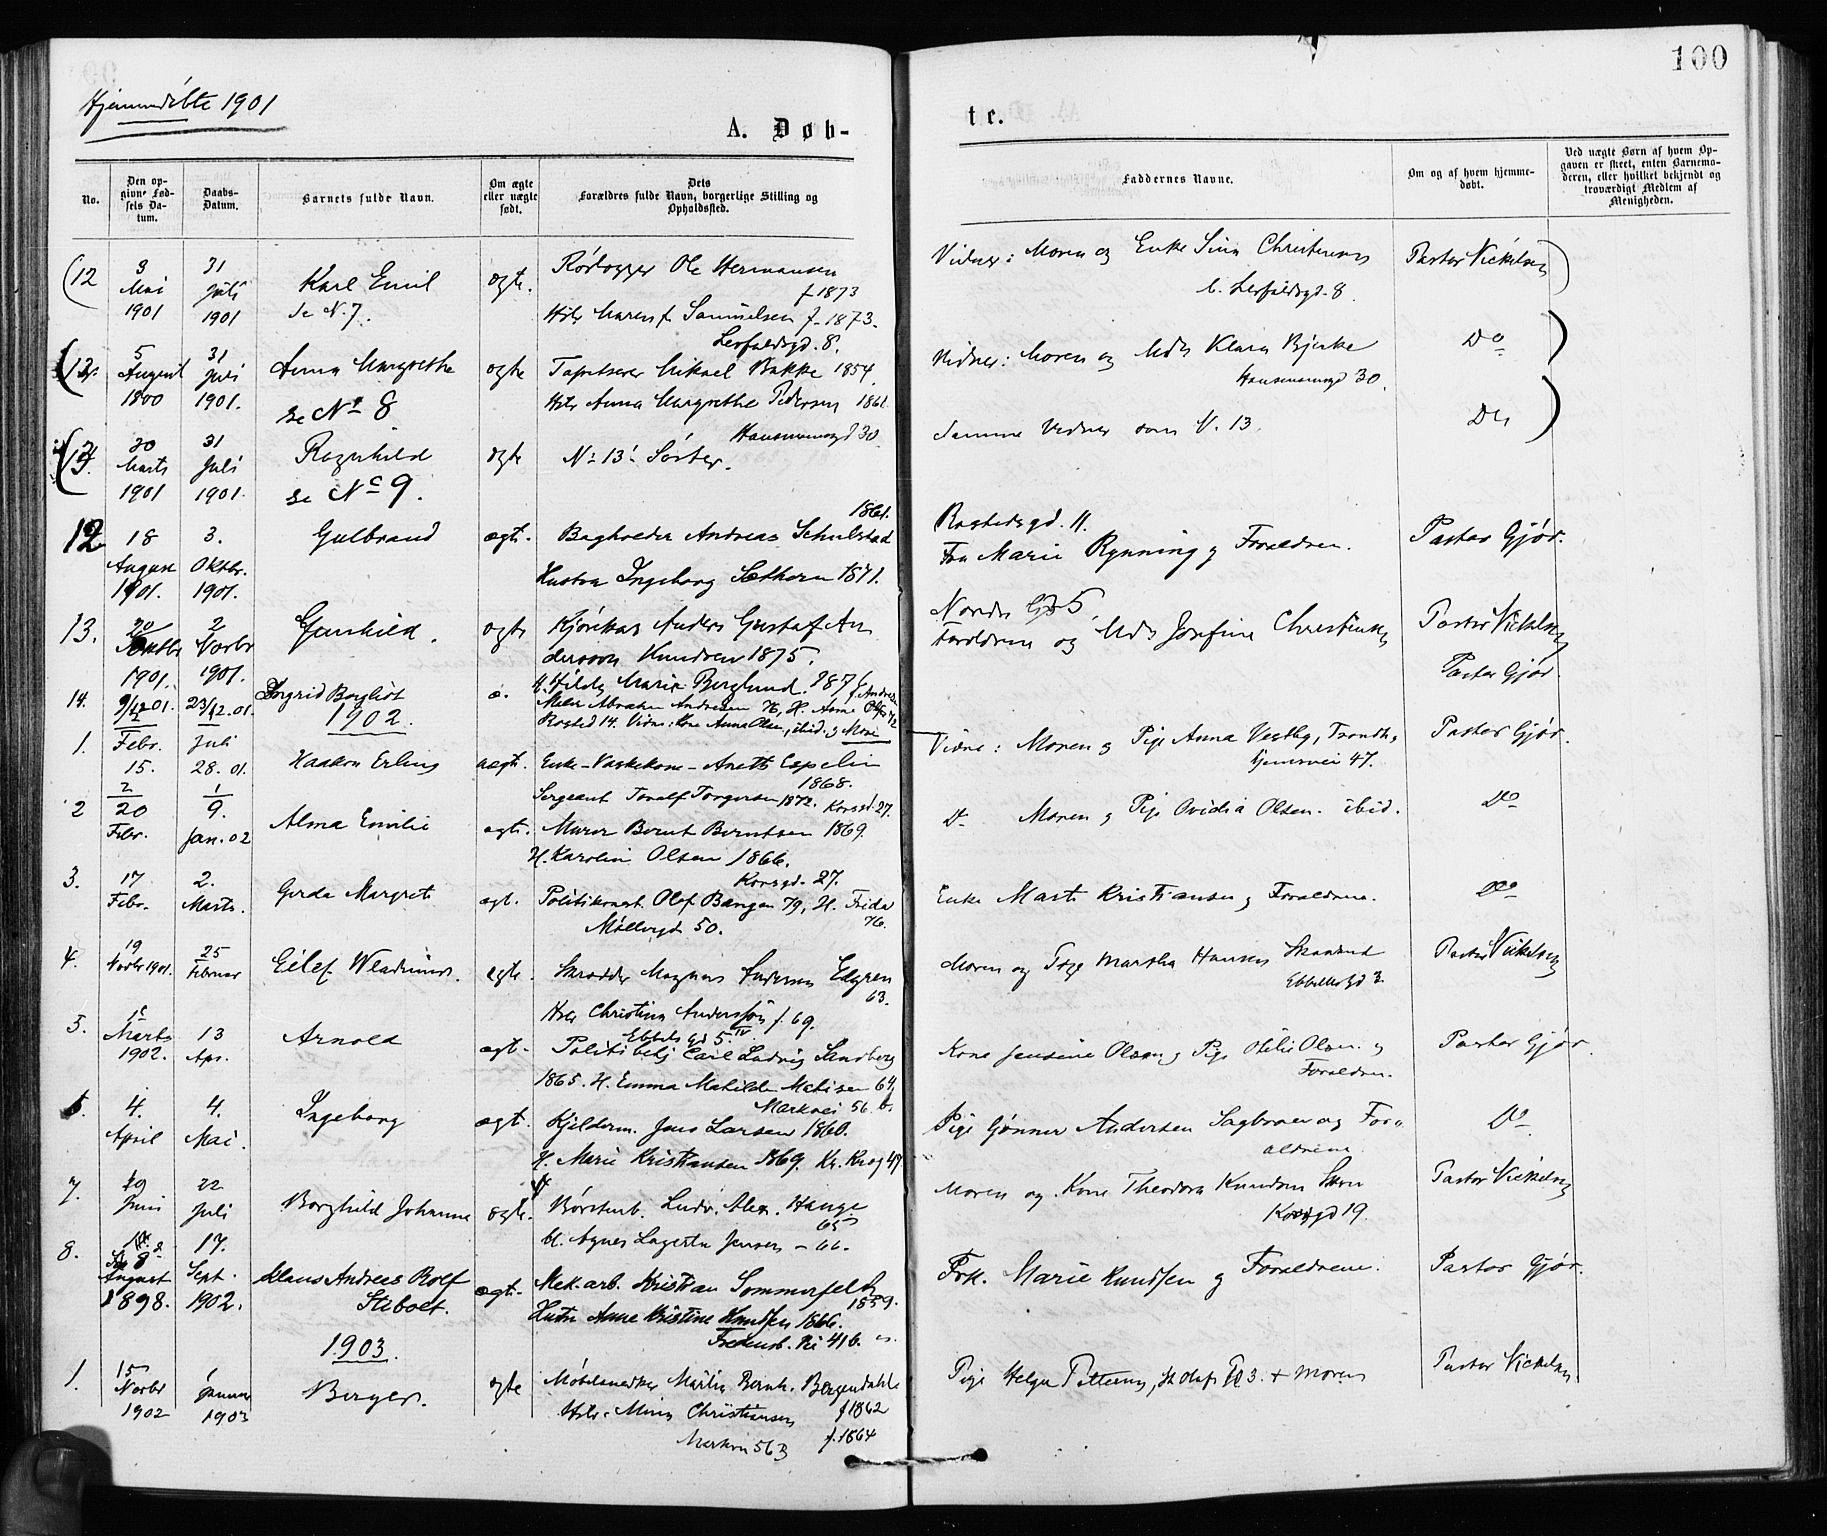 100
Hjemmedøbte 1901
A. Døb-
te.
No.
Den op-
givne Fød-
sels Da-
tum.
Daabs-
Datum.
Barnets fulde Navn.
Om ægte
eller uægte
født.
Dets
Forældres fulde Navn, borgerlige Stilling og
Opholdssted.
Faddernes Navne.
Om og af hvem hjemme-
døbt.
Ved uægte Børn af hvem Op-
gaven er skeet, enten Barnemo-
deren, eller hvilket bekjendt og
troværdigt Medlem af
Menigheden.
(12
3
Mai
1901
31
Juli
1901
Karl Emil
se N. 7.
ægte.
Rørlægger Ole Hermansen
f 1873
Samuelsen f. 1873.
8.
Vidner: Moren og Enke Christensen
8.
Pastor Nickelsen
(13.
5
August
1800
31
Juli
1901.
Anna Margrethe
se No 8
ægte
Mikael Bakke 1854
Anna Margrethe Pedersen 1861.
Hausmannsgd 30.
Vidner: Moren og Mds Klara Bjerke
Hausmannsgd 30.
Do
30
Marts
1901
31
Juli
1901.
Ragnhild
se No 9.
ægte
No 13's Søster.
Samme Vidner som N. 13.
Do
12
18
August
1901.
3.
Oktbr.
1901.
Gulbrand
ægte.
1861.
Andreas Schulstad
Hustru Ingeborg Sæthern 1871.
11.
Fru Marie Rynning og Forældren.
Pastor Gjør.
13.
20
1901.
2
Novbr
1901.
Gunhild.
ægte
Anders Gustaf An
dersson Knudsen 1875.
Marie Berglund. 187
5
Forældrene og Mds Josefine Christensen
Pastor Nickelsen
14.
9/12 01.
23/12. 01.
Ingrid Borghild
æ.
Abraham Andresen 76, H. Anna
14. Vidn: Kone Anna Olsen, ibid. og Moren
Pastor Gjør.
1902.
1.
Febr.
15.
Juli
28. 01.
Haakon Erling
uægt.
Enke - Vaskekone - Anette Espelin
1868.
Sergeant Toralf Torgersen 1872. Korsgd. 27.
Vidne: Moren og Pige Anna Vestby, Trondh.
47.
Pastor Gjør.
2
2
20
Febr.
1
9.
Jan. 02
Alma Emilie
ægte.
Murer Bernt Berntsen 1869.
H. Karoline Olsen 1866.
Korsgd. 27.
Do Moren og Pige Ovidia Olsen. ibid.
Do
3.
17
Febr.
2.
Marts.
Gerda Margret
ægt.
Politikonst. Olaf Bangen 79, H. Frida
76.
Møllergd 50.
Enke Marit Kristiansen og Forældrene.
Do
4.
19
Novbr 1901.
25
Februar
Eilef Wladimir.
ægte.
Skrædder Magnus Andersen Edgren
63.
Hstr Christina Andersson f. 69.
Ebbels gd 5 IV
Moren og Martha Hansen
Ebbellsgd 3
Pastor Nickelsen
5.
15
Marts
1902.
13
Apr.
Arnold
ægt.
Politibetj Carl Ludvig Sandberg
1865. H. Emma Mathilde Mathisen 64,
Markvei 56 b.
Kone Jensine Olsen og Pige Otilie Olsen. og
Forældren.
Pastor Gjør.
6.
4.
April
4.
Mai.
Ingeborg
ægt.
Kjelderm. Jens Larsen 1860.
H. Marie Kristiansen 1869. Kr. Krog 49
Pige Gønner Andersen Sagbraaten og For-
ældrene.
Do
7.
19
Juni
22
Juli
Borghild Johanne
ægte.
Børstenb. Ludv. Alex. Hauge
65
H. Agnes Lagerta Jensen - 66.
Moren og Kone Theodora Knudsen
Korsgd 19.
Pastor Nickelsen
8.
8
August
1898.
17.
Sept.
1902.
Klaus Andreas Rolf
Stibolt.
ægt.
Mek. arb. Kristian Sommerfeldt
1859.
Hustru Anne Kristine Knudsen 1866.
41 b.
Frk. Marie Knudsen og Forældrene.
Pastor Gjør.
1903.
1.
15
Novbr
1902
1
Januar
1903
Birger.
ægte
Møbelsnedker Martin Bernh. Bergendahl
f 1862
Hstr. Mina Christiansen
f. 1864
Markvn 56 3
Pige Helga Pettersen, St Olafs Pl 3. + Moren
Pastor Nickelsen